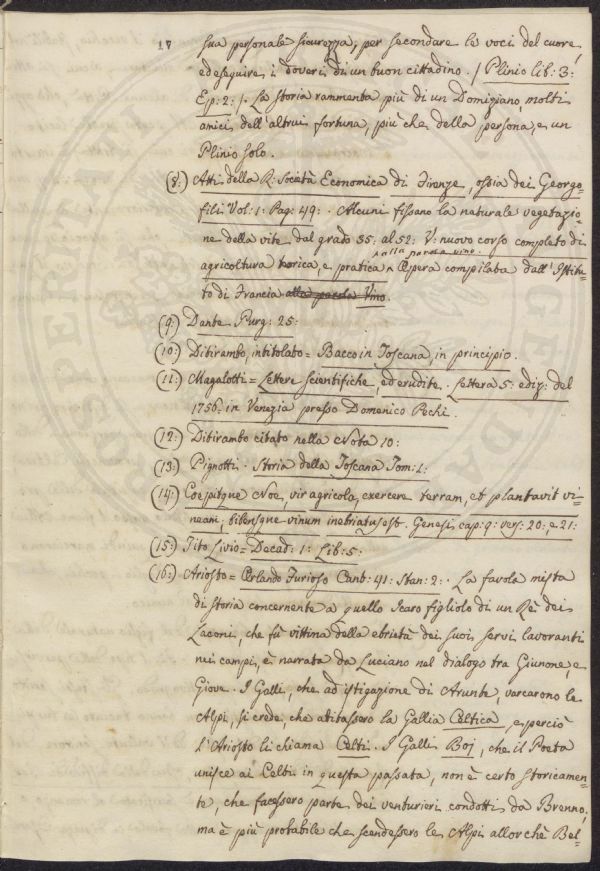 17
sua personale sicurezza, per secondare le voci del cuore,
ed eseguire i doveri di un buon cittadino. / Plinio lib: 3:
Ep: 2: /. La storia rammenta più di un Domiziano, molti
amici dell'altrui fortuna, più che della persona, e un
Plinio solo.
(8:) Atti della R: Società Economica di Firenze, ossia dei Georgo=
fili Vol: 1: Pag: 49: . Alcuni fissano la naturale vegetazio=
ne della vite dal grado 35: al 52: V: nuovo corso completo di
alla parola vino.
agricoltura teorica, e pratica ^ Opera compilata dall'Istitu=
to di Francia alla parola Vino.
(9:) Dante Purg: 25:
(10:) Ditirambo, intitolato = Bacco in Toscana, in principio.
(11:) Magalotti = Lettere Scientifiche, ed erudite. Lettera 5: ediz: del
1756: in Venezia presso Domenico Pechi.
(12:) Ditirambo citato nella Nota 10:
(13:) Pignotti. Storia della Toscana Tom: 1:
(14:) Coepitque Noe, vir agricola, exercere terram, et plantavit vi=
neam, bibensque vinum inebriatus est. Genesi cap: 9: vers: 20: e 21:
(15:) Tito Livio = Decad: 1: Lib: 5:
(16:) Ariosto = Orlando Furioso Cant: 41: Stan: 2: . La favola mista
di storia concernente a quello Icaro figliolo di un Rè dei
Laconi, che fù vittima della ebrietà dei suoi servi lavoranti
nei campi, è narrata da Luciano nel dialogo tra Giunone, e
Giove. I Galli, che ad istigazione di Arunte, varcarono le
Alpi, si crede, che abitassero la Gallia Celtica, e perciò
l'Ariosto li chiama Celti. I Galli Boj, che il Poeta
unisce ai Celti in questa passata, non è certo storicamen=
te, che facessero parte dei venturieri condotti da Brenno,
ma è più probabile che scendessero le Alpi allorchè Bel=